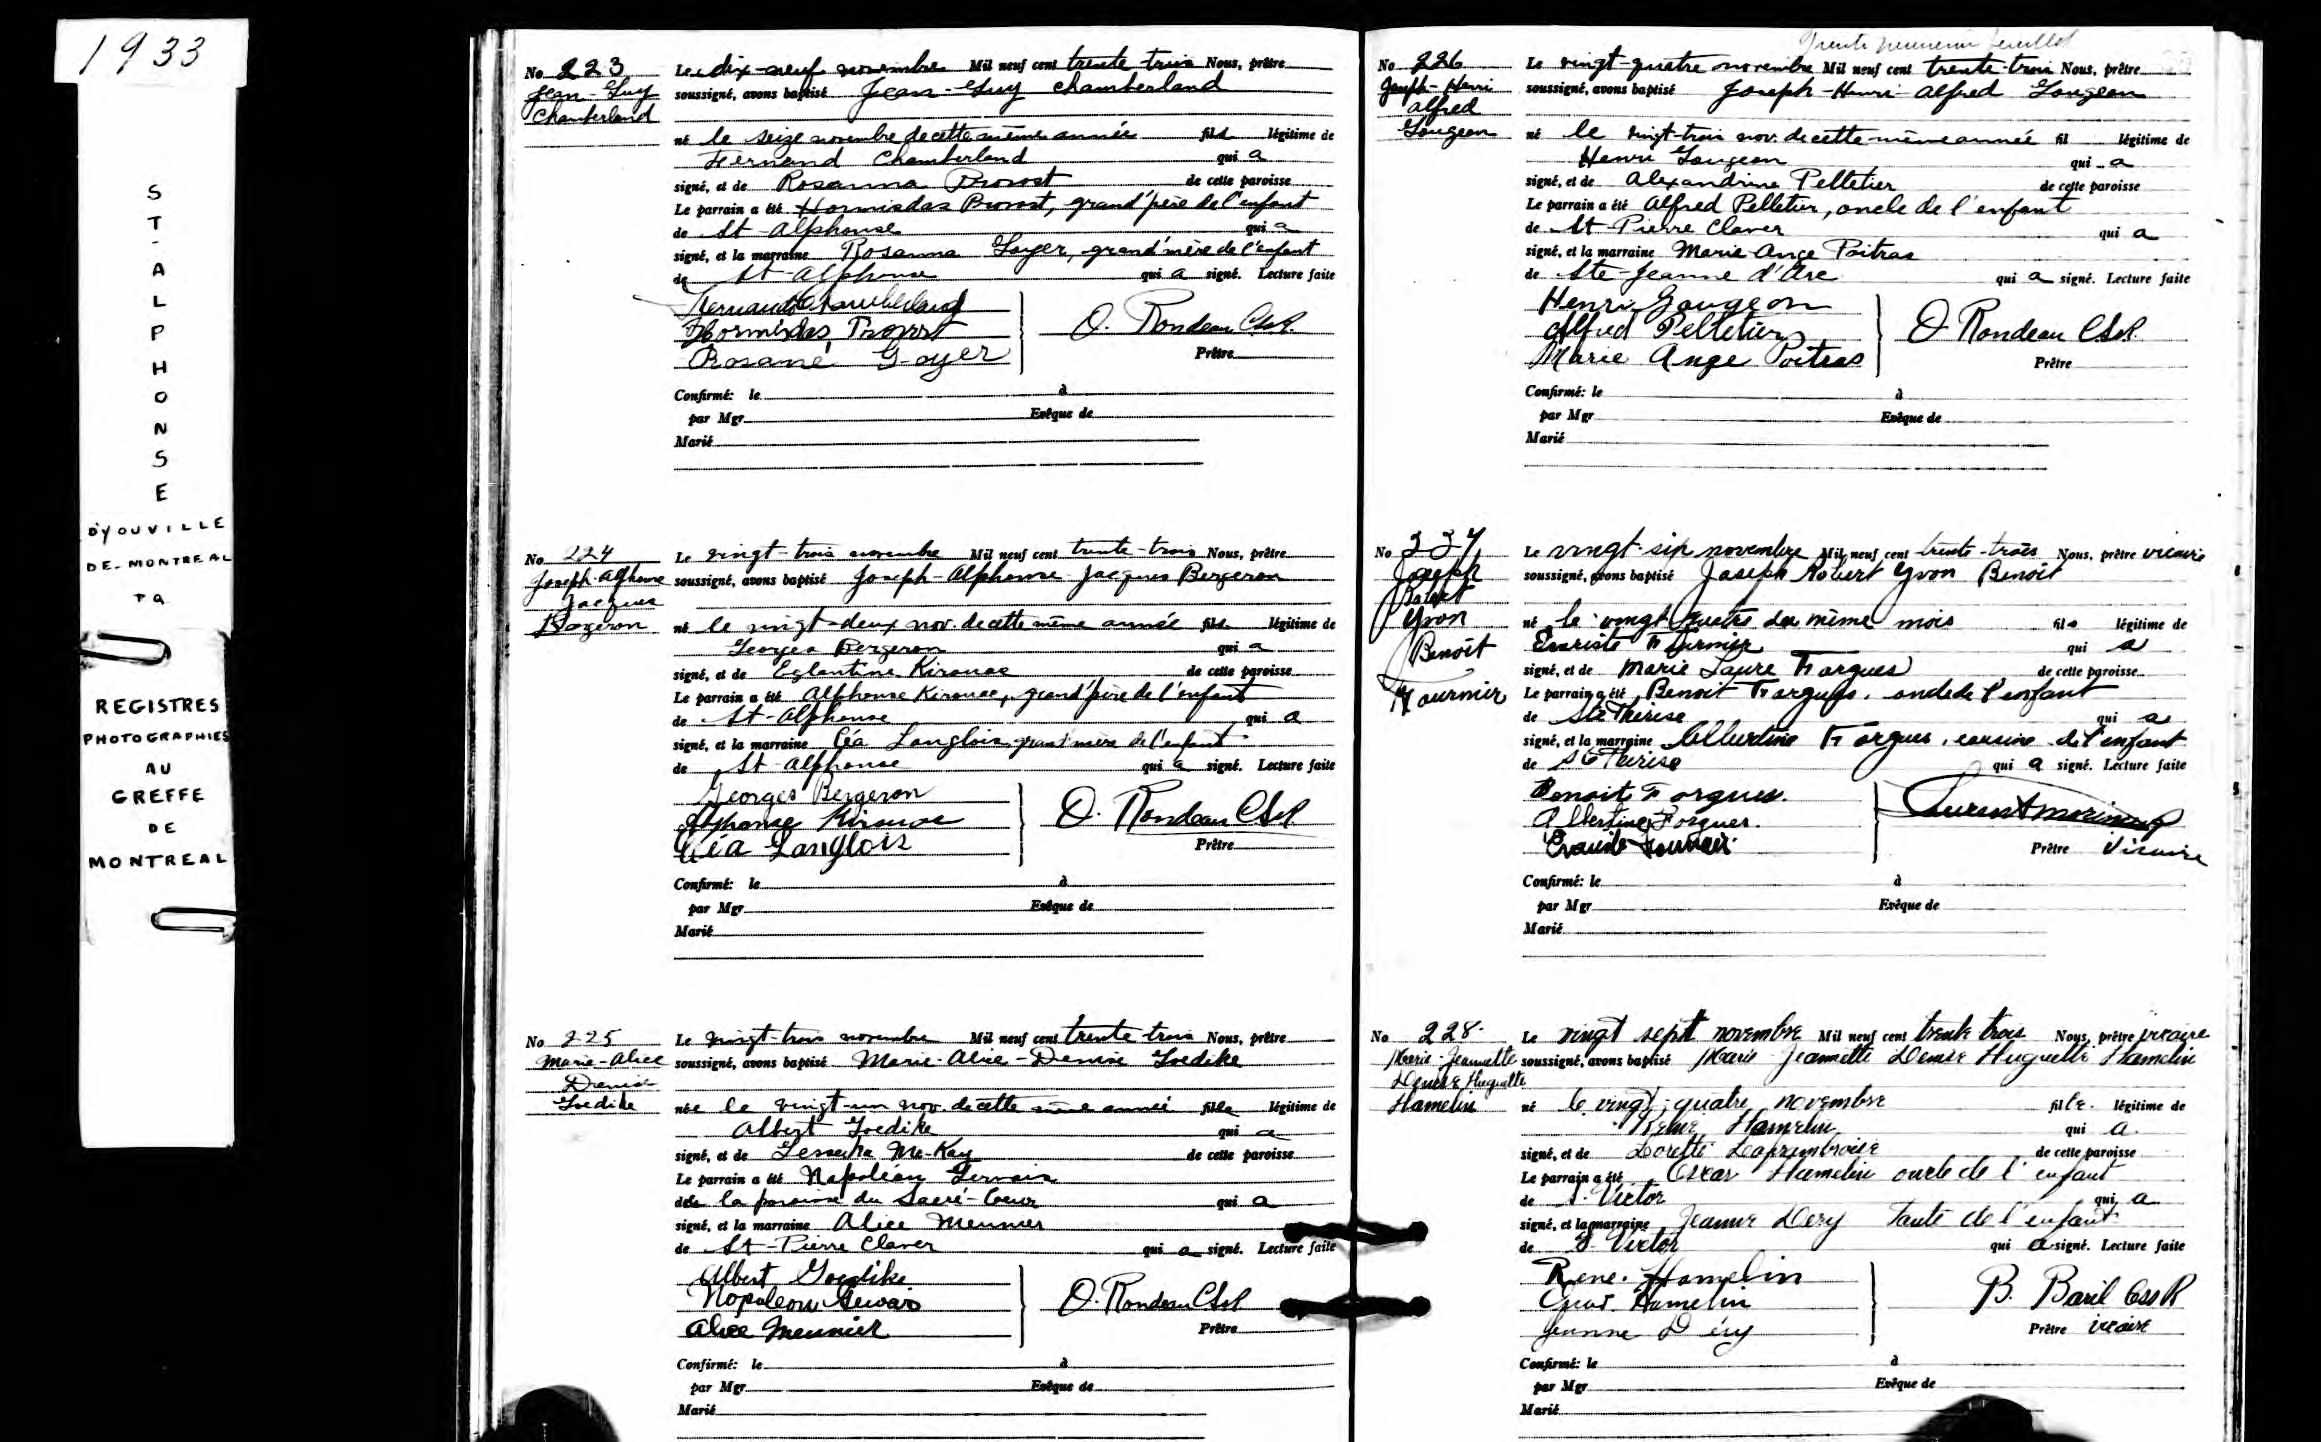 1933
ST-ALPHONSE
D'YOUVILLE
DE-MONTREAL
REGISTRES
PHOTOGRAPHIES
AU
GREFFE
DE
MONTREAL
No 223
Jean-Guy
Chamberland
Le dix-neuf novembre Mil neuf cent trente trois Nous, prêtre
soussigné, avons baptisé Jean-Guy Chamberland
né le seize novembre de cette même année fils légitime de
Fernand Chamberland qui a
signé, et de Rosanna Provost de cette paroisse
Le parrain a été Hormisdas Provost, grand'père de l'enfant
de St-Alphonse qui a
signé, et la marraine Rosanna Goyer, grand'mère de l'enfant
de St-Alphonse qui a signé. Lecture faite
Fernand Chamberland
Hormisdas Provost
Rosanna Goyer
O. Rondeau CSsR.
Prêtre
Confirmé: le à
par Mgr Evêque de
Marié
No 224
Joseph-Alphonse
Jacques
Bergeron
Le vingt-trois novembre Mil neuf cent trente-trois Nous, prêtre
soussigné, avons baptisé Joseph-Alphonse-Jacques Bergeron
né le vingt-deux nov. de cette même année fils légitime de
Georges Bergeron qui a
signé, et de Eglantine Kirouac de cette paroisse
Le parrain a été Alphonse Kirouac, grand'père de l'enfant
de St-Alphonse qui a
signé, et la marraine Léa Langlois, grand'mère de l'enfant
de St-Alphonse qui a signé. Lecture faite
Georges Bergeron
Alphonse Kirouac
Léa Langlois
O. Rondeau CSsR
Prêtre
Confirmé: le à
par Mgr Evêque de
Marié
No 225
Marie-Alice
Denise
Goedike
Le vingt-trois novembre Mil neuf cent trente trois Nous, prêtre
soussigné, avons baptisé Marie-Alice-Denise Goedike
née le vingt-un nov. de cette même année fille légitime de
Albert Goedike qui a
signé, et de Mc-Kay de cette paroisse
Le parrain a été Napoléon Gervais
de la paroisse du Sacré-Coeur qui a
signé, et la marraine Alice Meunier
de St-Pierre Claver qui a signé. Lecture faite
Albert Goedike
Napoleon Gervais
Alice Meunier
O. Rondeau CSsR
Prêtre
Confirmé: le à
par Mgr Evêque de
Marié
feuillet
No 226
Joseph-Henri
Alfred
Gougeon
Le vingt-quatre novembre Mil neuf cent trente-trois Nous, prêtre
soussigné, avons baptisé Joseph-Henri-Alfred Gougeon
né le vingt-trois nov. de cette même année fil légitime de
Henri Gougeon qui a
signé, et de Alexandrine Pelletier de cette paroisse
Le parrain a été Alfred Pelletier, oncle de l'enfant
de St-Pierre Claver qui a
signé, et la marraine Marie-Ange Poitras
de Ste-Jeanne d'Arc qui a signé. Lecture faite
Henri Gougeon
Alfred Pelletier
Marie Ange Poitras
O Rondeau CSsR.
Prêtre
Confirmé: le à
par Mgr Evêque de
Marié
No 227
Joseph
Robert
Yvon
Benoît
Fournier
Le vingt-six novembre Mil neuf cent trente-trois Nous, prêtre vicaire
soussigné, avons baptisé Joseph Robert Yvon Benoît
né le vingt quatre du même mois fils légitime de
Evariste Fournier qui a
signé, et de Marie Laure Forgues de cette paroisse
Le parrain a été Benoit Forgues, oncle de l'enfant
de Ste Thérèse qui a
signé, et la marraine Albertine Forgues, cousine de l'enfant
de Ste Thérèse qui a signé. Lecture faite
Benoit Forgues.
Albertine Forgues.
Evariste Fournier
Prêtre Vicaire
Confirmé: le à
par Mgr Evêque de
Marié
No 228
Marie-Jeannette
Denise Huguette
Hamelin
Le vingt sept novembre Mil neuf cent trente trois Nous, prêtre vicaire
soussigné, avons baptisé Marie Jeannette Denise Huguette Hamelin
né le vingt-quatre novembre fille légitime de
René Hamelin qui a
signé, et de Lorette Laframboise de cette paroisse
Le parrain a été Oscar Hamelin oncle de l'enfant
de S. Victor qui a
signé, et la marraine Jeanne Dery tante de l'enfant
de S. Victor qui a signé. Lecture faite
Rene Hamelin
Oscar Hamelin
Jeanne Déry
B. Baril CssR
Prêtre vicaire
Confirmé: le à
par Mgr Evêque de
Marié